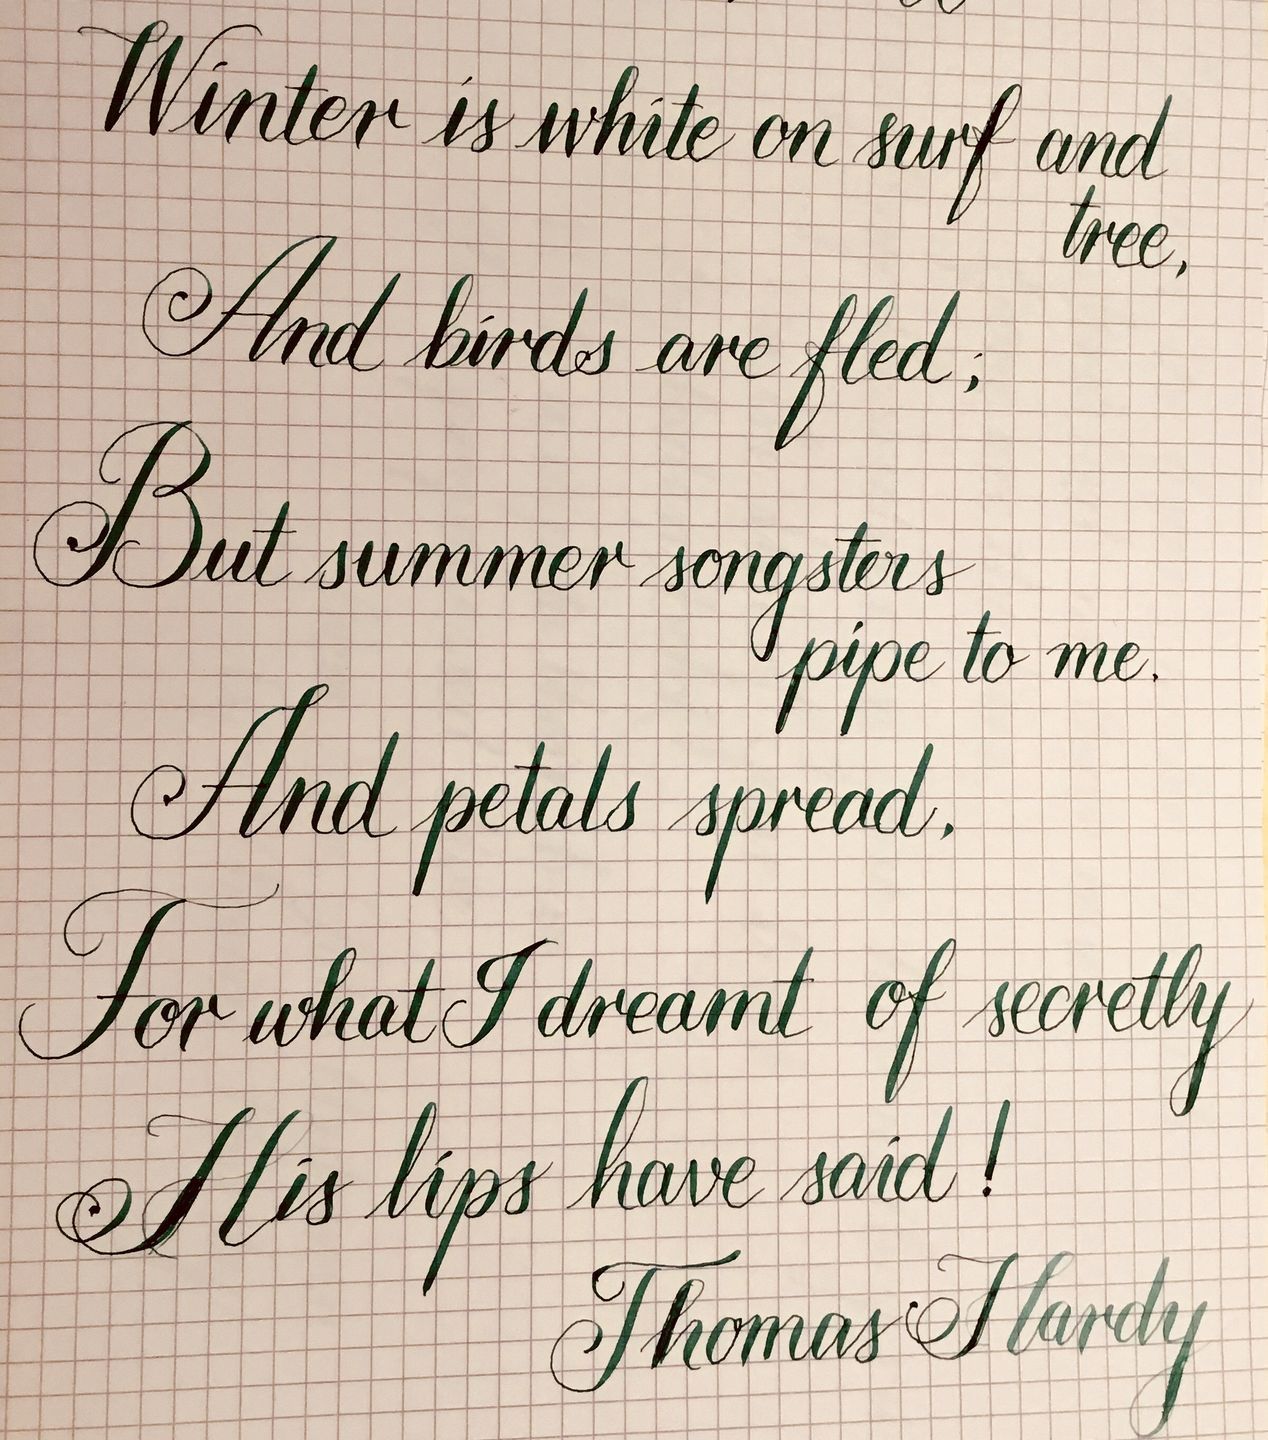 Winter is white on surf and
tree,
And birds are fled;
But summer songsters
pipe to me.
And petals spread,
For what I dreamt of secretly
His lips have said!
Thomas Hardy